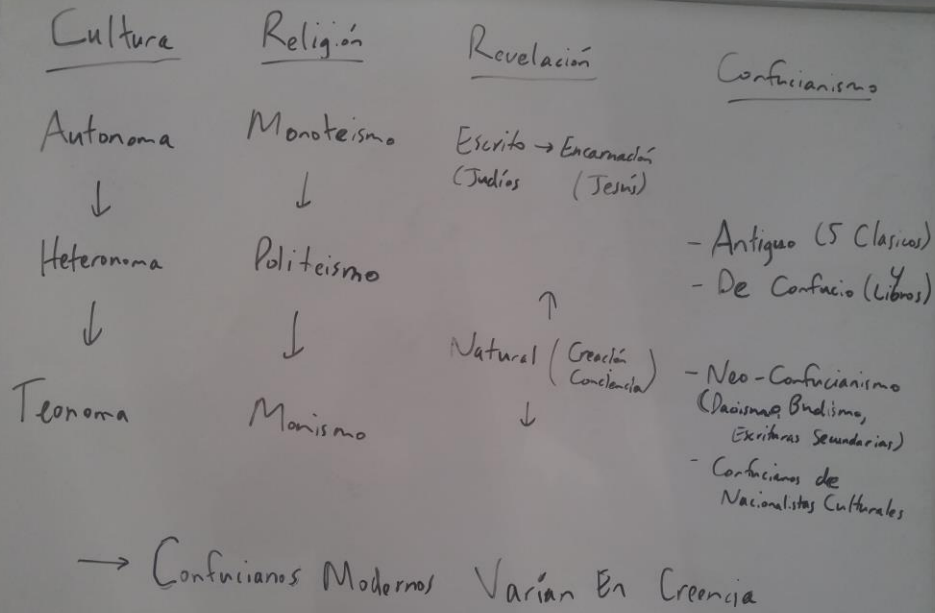 Cultura
Autonoma
↓
Heteronoma
↓
Teonoma
Religión
Monoteismo
↓
Politeismo
↓
Monismo
Revelación
Escrito → Encarnación
(Judíos (Jesús)
↑
Natural (Creación
Conciencia)
↓
Confucianismo
- Antiguo (5 Clasicos)
- De Confucio (4 Libros)
- Neo-Confucianismo
(Daoismo, Budismo,
Escrituras Secundarias)
- Confucianos de
Nacionalistas Culturales
→ Confucianos Modernos Varían En Creencia